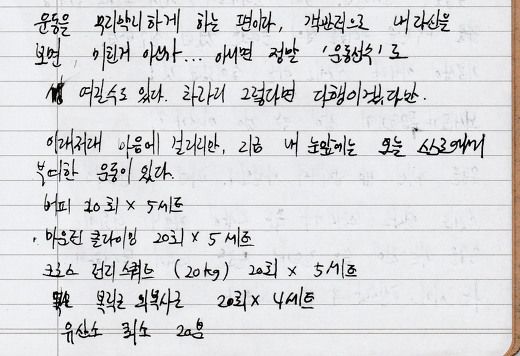 운동을 무리하게 하는 편이라, 객관적으로 내 자신을
보면, 미친게 아닌가... 아니면 정말 '운동선수'로
여길수도 있다. 차라리 그렇다면 다행이겠다만.
이래저래 마음에 걸리지만, 지금 내 눈앞에는 오늘
부여한 운동이 있다.
버피 20회 × 5세트
마운틴 클라이밍 20회 × 5세트
크로스 런지 스쿼트 (20kg) 20회 × 5세트
복직근 외복사근 20회 × 4세트
유산소 최소 20분